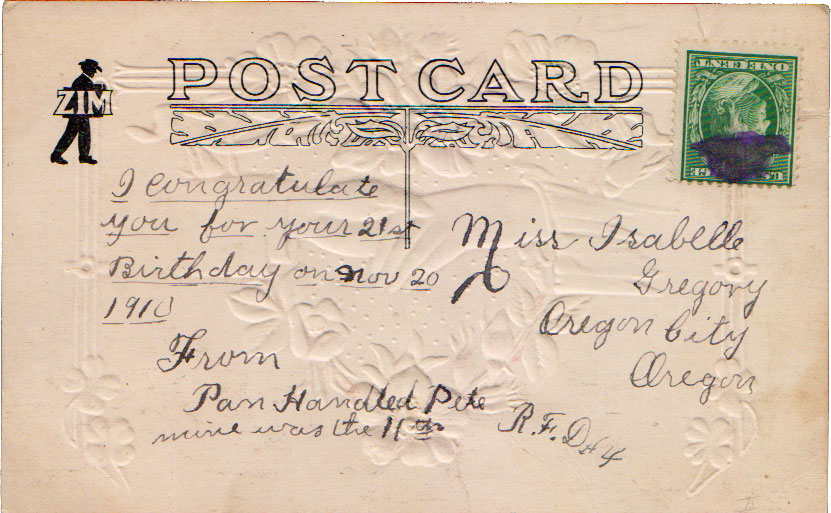 POST CARD
ZIM
I congratulate
you for your 21st
Birthday on Nov 20
1910
From
Pan Handled Pete
mine was the 11th
Miss Isabelle
Gregory
Oregon City
Oregon
R.F.D #4
ONE CENT